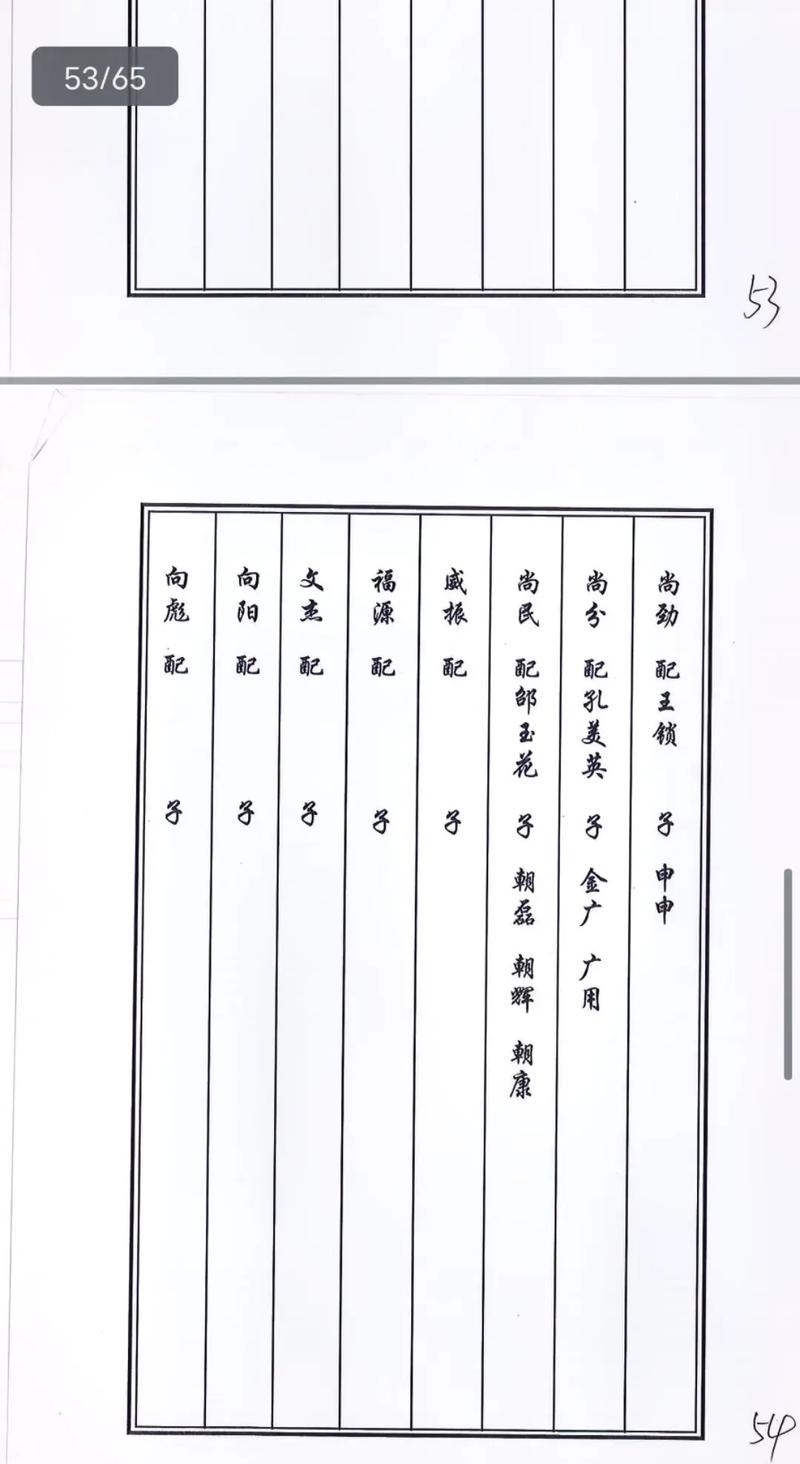 53/65
53
尚劲 配王锁 子 申申
尚分 配孔美英 子 金广 广用
尚民 配邰玉花 子 朝磊 朝辉 朝康
威振 配 子
福源 配 子
文杰 配 子
向阳 配 子
向彪 配 子
54